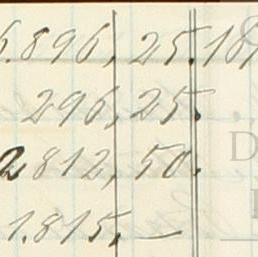 6.896, 25. 18,
296, 25.
2812, 50.
1.815, —
D